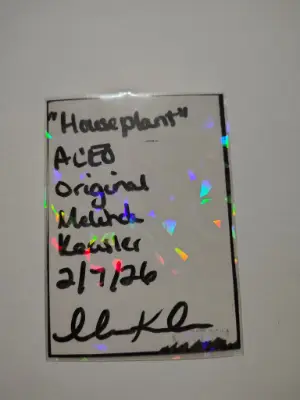 "Houseplant"
ACEO
Original
Melinda
2/7/26